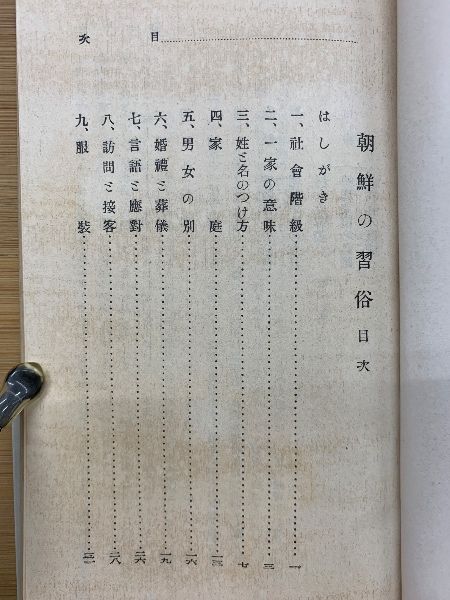 朝鮮の習俗 目次
はしがき
一、社會階級……一
二、一家の意味……三
三、姓と名のつけ方……七
四、家庭……一三
五、男女の別……一六
六、婚禮と葬儀……一九
七、言語と應對……二六
八、訪問と接客……二八
九、服裝……
目次